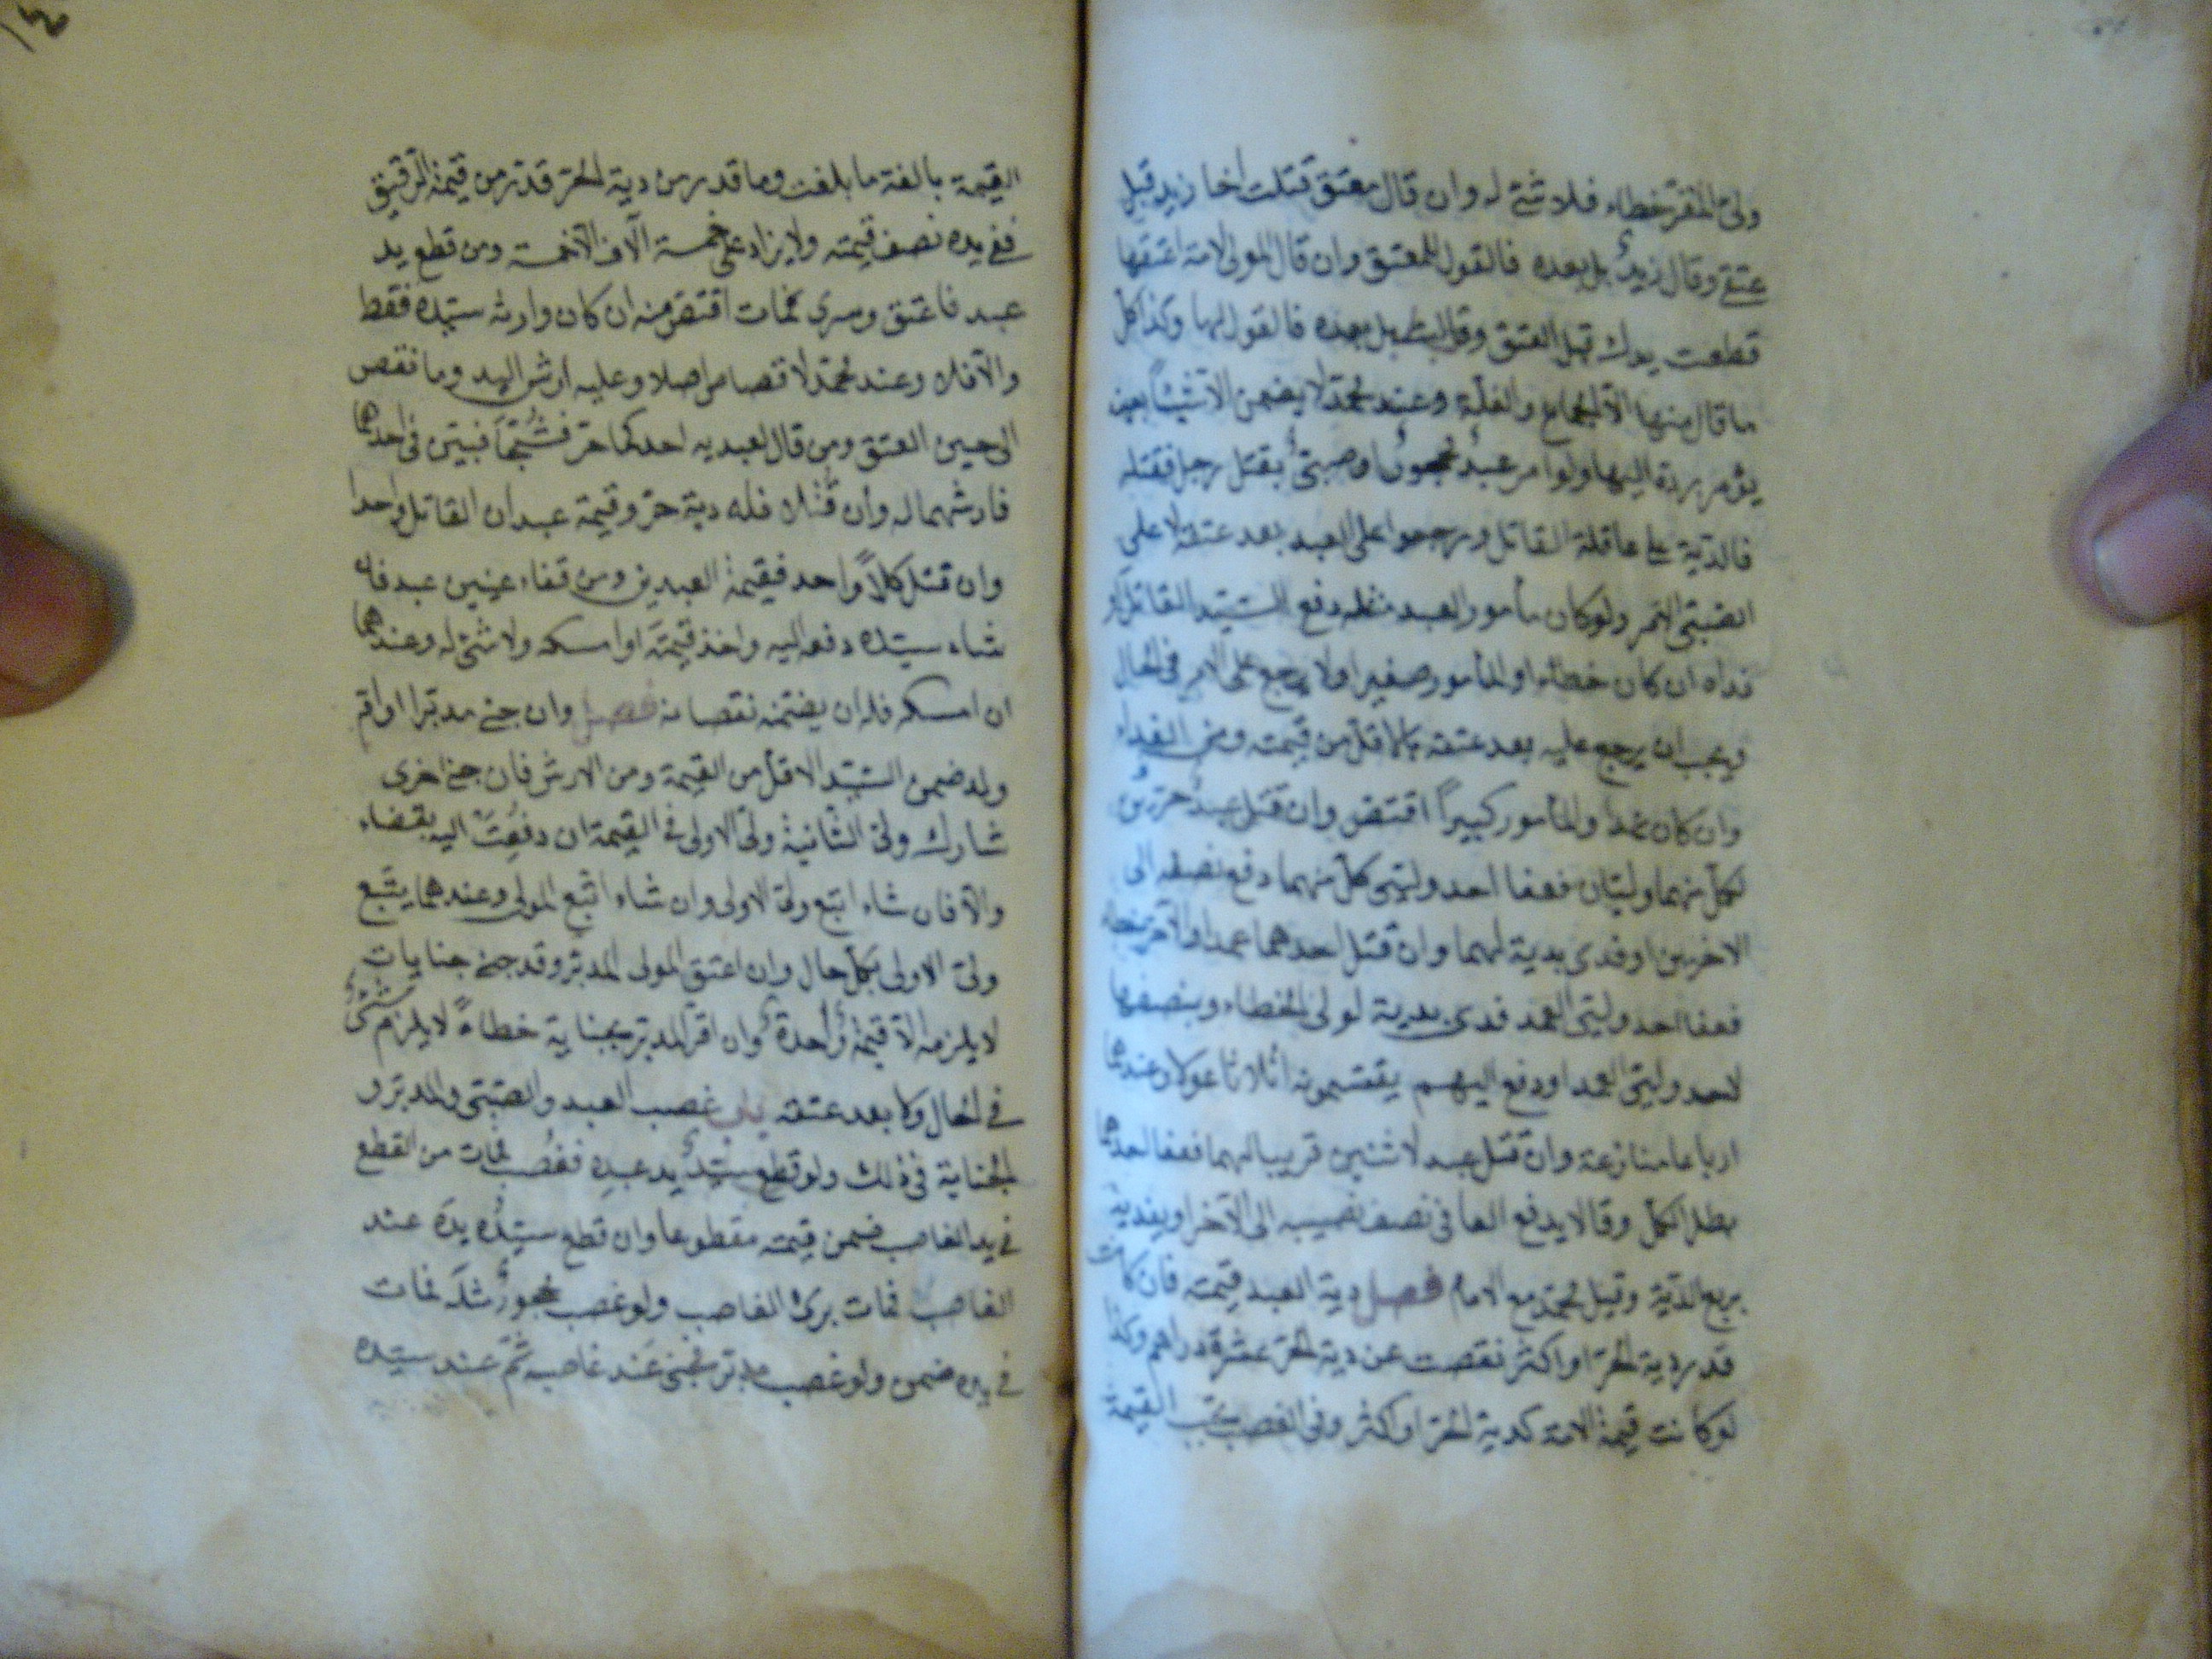 ولىّ المقرّ خطاء فلا شئ له وان قال معتق قتلت اخا زيد قبل
عتقى وقال زيد بل بعده فالقول للمعتق وان قال المولى لامة اعتقها
قطعت يدك قبل العتق وقالت بل بعده فالقول لها وكذا كلّ
ما قال منها الّا الجماع والغلّة وعند محمّد لا يضمن الّا شيئاً بعينه
يؤمر بردّه اليها ولو امر عبدٌ محجورٌ او صبىّ بقتل رجل فقتله
فالدّية على عاقلة القاتل ورجعوا على العبد بعد عتقه لا على
الصّبىّ الآمر ولو كان مأمور العبد مثله دفع السّيّد القاتل او
فداه ان كان خطاء او المأمور صغيرا ولا يرجع على الآمر فى الحال
ويجب ان يرجع عليه بعد عتقه بالاقلّ من قيمته ومن الفداء
وان كان عمداً والمأمور كبيراً اقتصّ وان قتل عبدٌ حرّين
لكلّ منهما وليّان فعفا احد وليّى كلّ منهما دفع نصفه الى
الآخرين او فدى بدية لهما وان قتل احدهما عمدا والآخر خطاء
فعفا احد وليّى العمد فدى بدية لولى الخطاء وبنصفها
لاحد وليّى العمد او دفع اليهم يقتسمونه اثلاثا عولا وعندهما
ارباعا منازعة وان قتل عبد لاثنين قريبا لهما فعفا احدهما
بطل الكلّ وقالا يدفع العافى نصف نصيبه الى الآخر او يفديه
بربع الدّية وقيل محمّد مع الامام فصل دية العبد قيمته فان كانت
قدر دية الحرّ او اكثر نقصت عن دية الحرّ عشرة دراهم وكذا
لو كانت قيمة الامة كدية الحرّة او اكثر وفى الغصب تجب القيمة
القيمة بالغة ما بلغت وما قدر من دية الحرّ قدّر من قيمة الرّقيق
ففى يده نصف قيمته ولا يزاد على خمسة آلاف الّا خمسة ومن قطع يد
عبد فاعتق وسرى فمات اقتصّ منه ان كان وارثه سيّده فقط
والّا فلا وعند محمّد لا قصاص اصلا وعليه ارش اليد وما نقص
الى حين العتق ومن قال لعبديه احدكما حرّ فشُجّا فبيّن فى احدهما
فارشهما له وان قُتلا فله دية حرّ وقيمة عبد ان القاتل واحدا
وان قتل كلّاً واحد فقيمة العبدين ومن فقاء عينى عبد فان
شاء سيّده دفعه اليه واخذ قيمته او امسكه ولا شئ له وعندهما
ان امسكه فله ان يضمّنه نقصانه فصل وان جنى مدبّر او امّ
ولد ضمن السّيّد الاقلّ من القيمة ومن الارش فان جنى اخرى
شارك ولىّ الثّانية ولىّ الاولى فى القيمة ان دفعت اليه بقضاء
والّا فان شاء اتّبع ولىّ الاولى وان شاء اتّبع المولى وعندهما يتّبع
ولىّ الاولى بكلّ حال وان اعتق المولى المدبّر وقد جنى جنايات
لا يلزمه الّا قيمةٌ واحدةٌ وان اقرّ المدبّر بجناية خطاءً لا يلزم شئٌ
فى الحال ولا بعد عتقه باب غصب العبد والصّبىّ والمدبّر و
الجناية فى ذلك ولو قطع سيّدٌ يد عبده فغُصب فمات من القطع
فى يد الغاصب ضمن قيمته مقطوعا وان قطع سيّدُه يدَه عند
الغاصب فمات برئ الغاصب ولو غصب محجورٌ مثلَه فمات
فى يده ضمن ولو غصب مدبّر فجنى عند غاصبه ثمّ عند سيّده